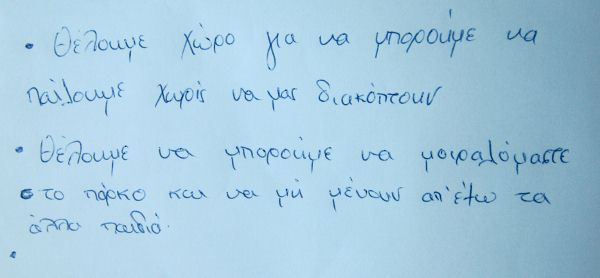 • Θέλουμε χώρο για να μπορούμε να
παίζουμε χωρίς να μας διακόπτουν
• Θέλουμε να μπορούμε να μοιραζόμαστε
στο πάρκο και να μη μένουν απ'έξω τα
άλλα παιδιά.
•